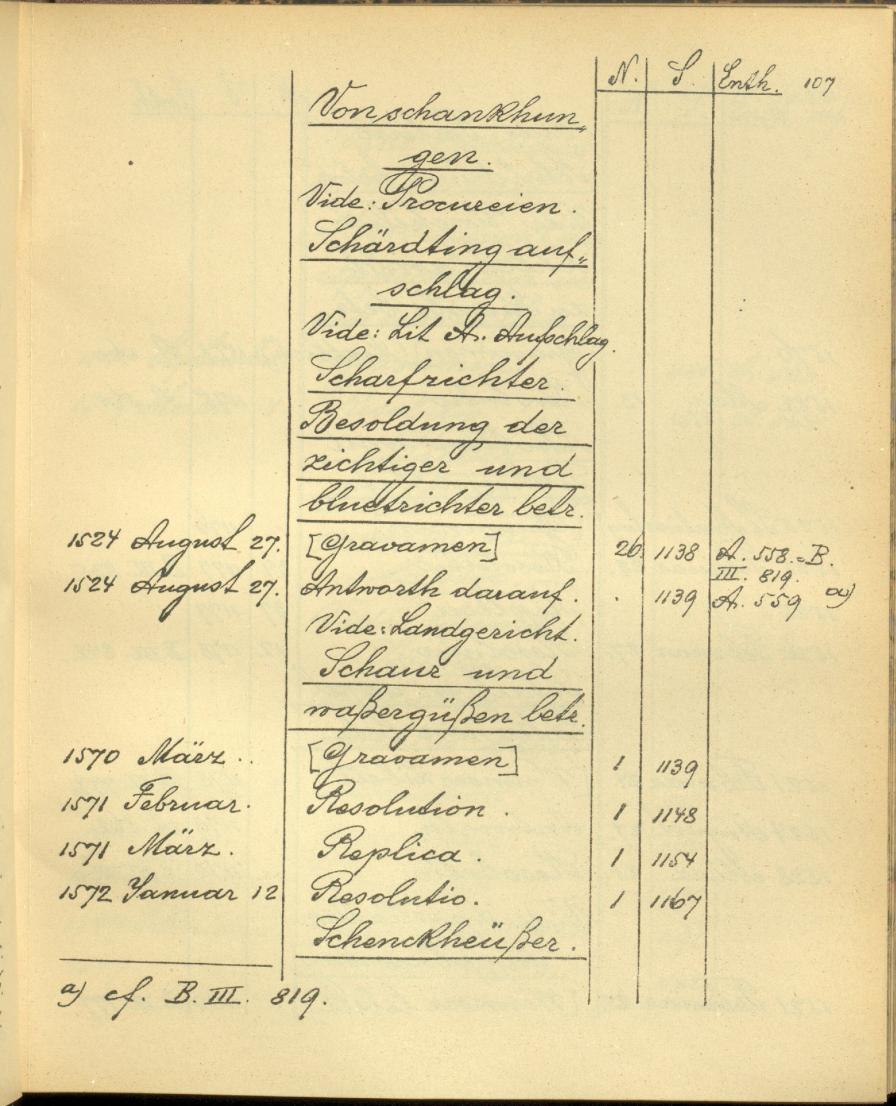 N. S. Enth. 107
Von schankhun„
gen.
Vide: Procureien.
Schärdting auf„
schlag.
Vide: Lit A. Aufschlag.
Scharfrichter.
Besoldung der
zichtiger und
bluetrichter betr.
1524 August 27. [Gravamen] 26 1138 A. 558.-B.
III. 819.
1524 August 27. Antworth darauf. . 1139 A. 559 a)
Vide: Landgericht.
Schaur und
waßergüßen betr.
1570 März.. [Gravamen] 1 1139
1571 Februar. Resolution. 1 1148
1571 März. Replica. 1 1154
1572 Januar 12 Resolutio. 1 1167
Schenckheüßer.
a) cf. B. III. 819.